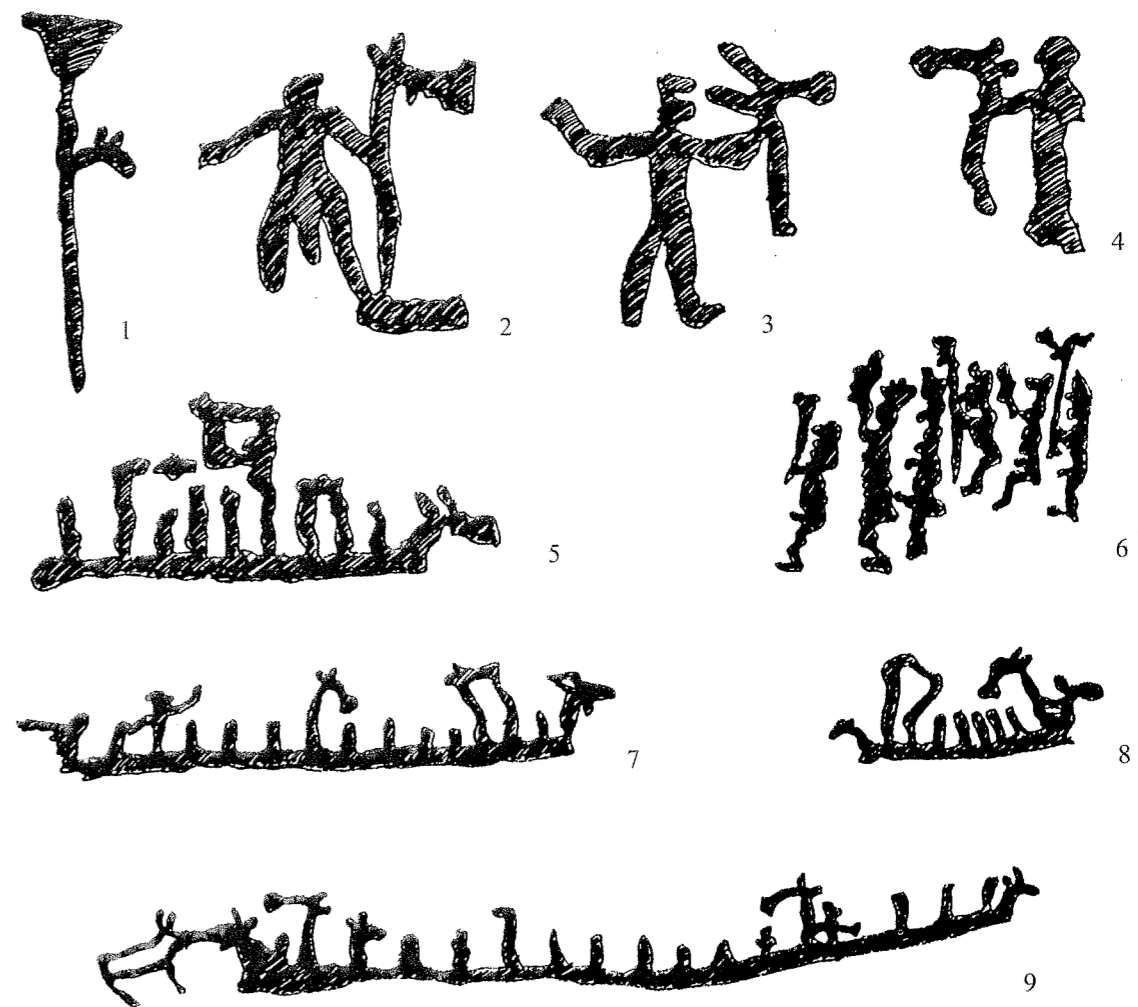 1
2
3
4
5
6
7
8
9